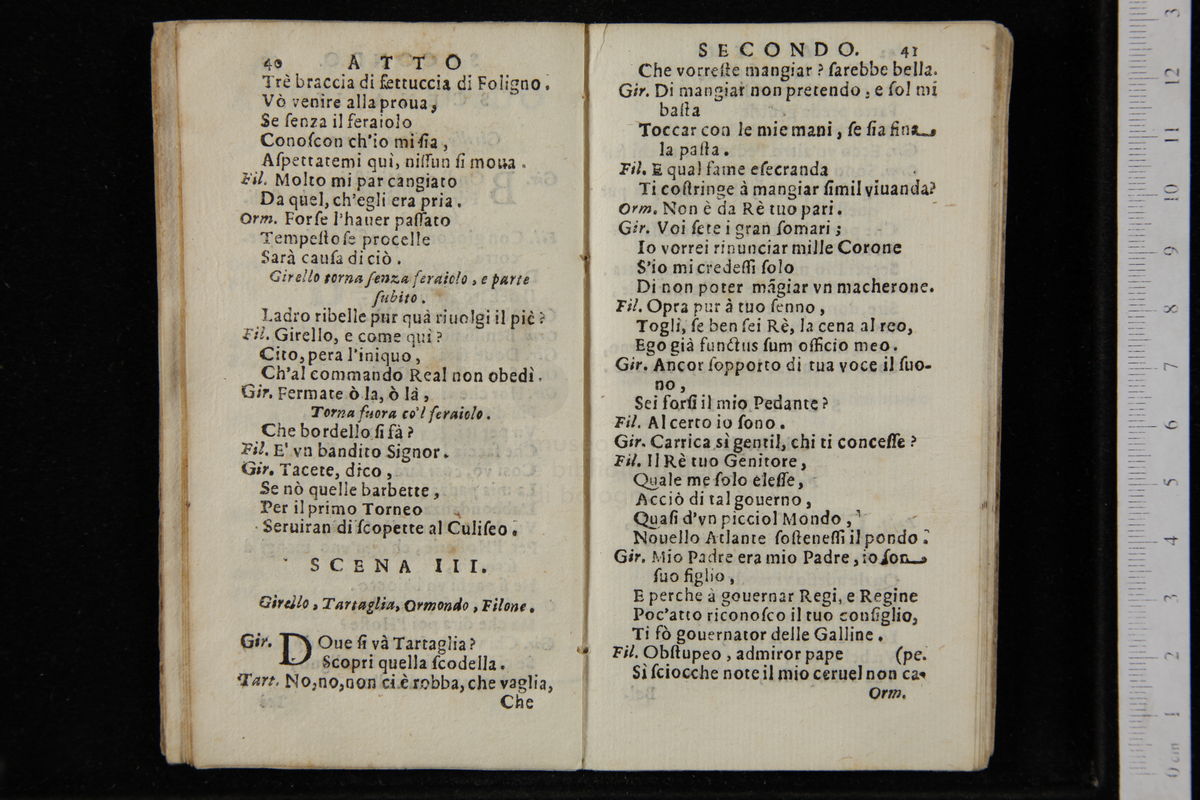 40 ATTO
Trè braccia di fettuccia di Foligno.
Vò venire alla proua,
Se ſenza il feraiolo
Conoſcon ch'io mi ſia,
Aſpettatemi quì, niſſun ſi moua.
Fil. Molto mi par cangiato
Da quel, ch'egli era pria.
Orm. Forſe l'hauer paſſato
Tempeſtoſe procelle
Sarà cauſa di ciò.
Girello torna ſenza feraiolo, e parte
ſubito.
Ladro ribelle pur quà riuolgi il piè?
Fil. Girello, e come quì?
Cito, pera l'iniquo,
Ch'al commando Real non obedì.
Gir. Fermate ò la, ò là,
Torna fuora co'l feraiolo.
Che bordello ſi fà?
Fil. E' vn bandito Signor.
Gir. Tacete, dico,
Se nò quelle barbette,
Per il primo Torneo
Seruiran di ſcopette al Culiſeo.
SCENA III.
Girello, Tartaglia, Ormondo, Filone.
Gir. DOue ſi và Tartaglia?
Scopri quella ſcodella.
Tart. No, no, non ci è robba, che vaglia,
Che
SECONDO. 41
Che vorreſte mangiar? ſarebbe bella.
Gir. Di mangiar non pretendo, e ſol mi
baſta
Toccar con le mie mani, ſe ſia fina
la paſta.
Fil. E qual fame eſecranda
Ti coſtringe à mangiar ſimil viuanda?
Orm. Non è da Rè tuo pari.
Gir. Voi ſete i gran ſomari;
Io vorrei rinunciar mille Corone
S'io mi credeſſi ſolo
Di non poter mãgiar vn macherone.
Fil. Opra pur à tuo ſenno,
Togli, ſe ben ſei Rè, la cena al reo,
Ego già functus ſum officio meo.
Gir. Ancor ſopporto di tua voce il ſuo-
no,
Sei forſi il mio Pedante?
Fil. Al certo io ſono.
Gir. Carrica sì gentil, chi ti conceſſe?
Fil. Il Rè tuo Genitore,
Quale me ſolo eleſſe,
Acciò di tal gouerno,
Quaſi d'vn picciol Mondo,
Nouello Atlante ſoſteneſſi il pondo.
Gir. Mio Padre era mio Padre, io ſon
ſuo figlio,
E perche à gouernar Regi, e Regine
Poc'atto riconoſco il tuo conſiglio,
Ti fò gouernator delle Galline.
Fil. Obſtupeo, admiror pape (pe.
Sì ſciocche note il mio ceruel non ca-
Orm.